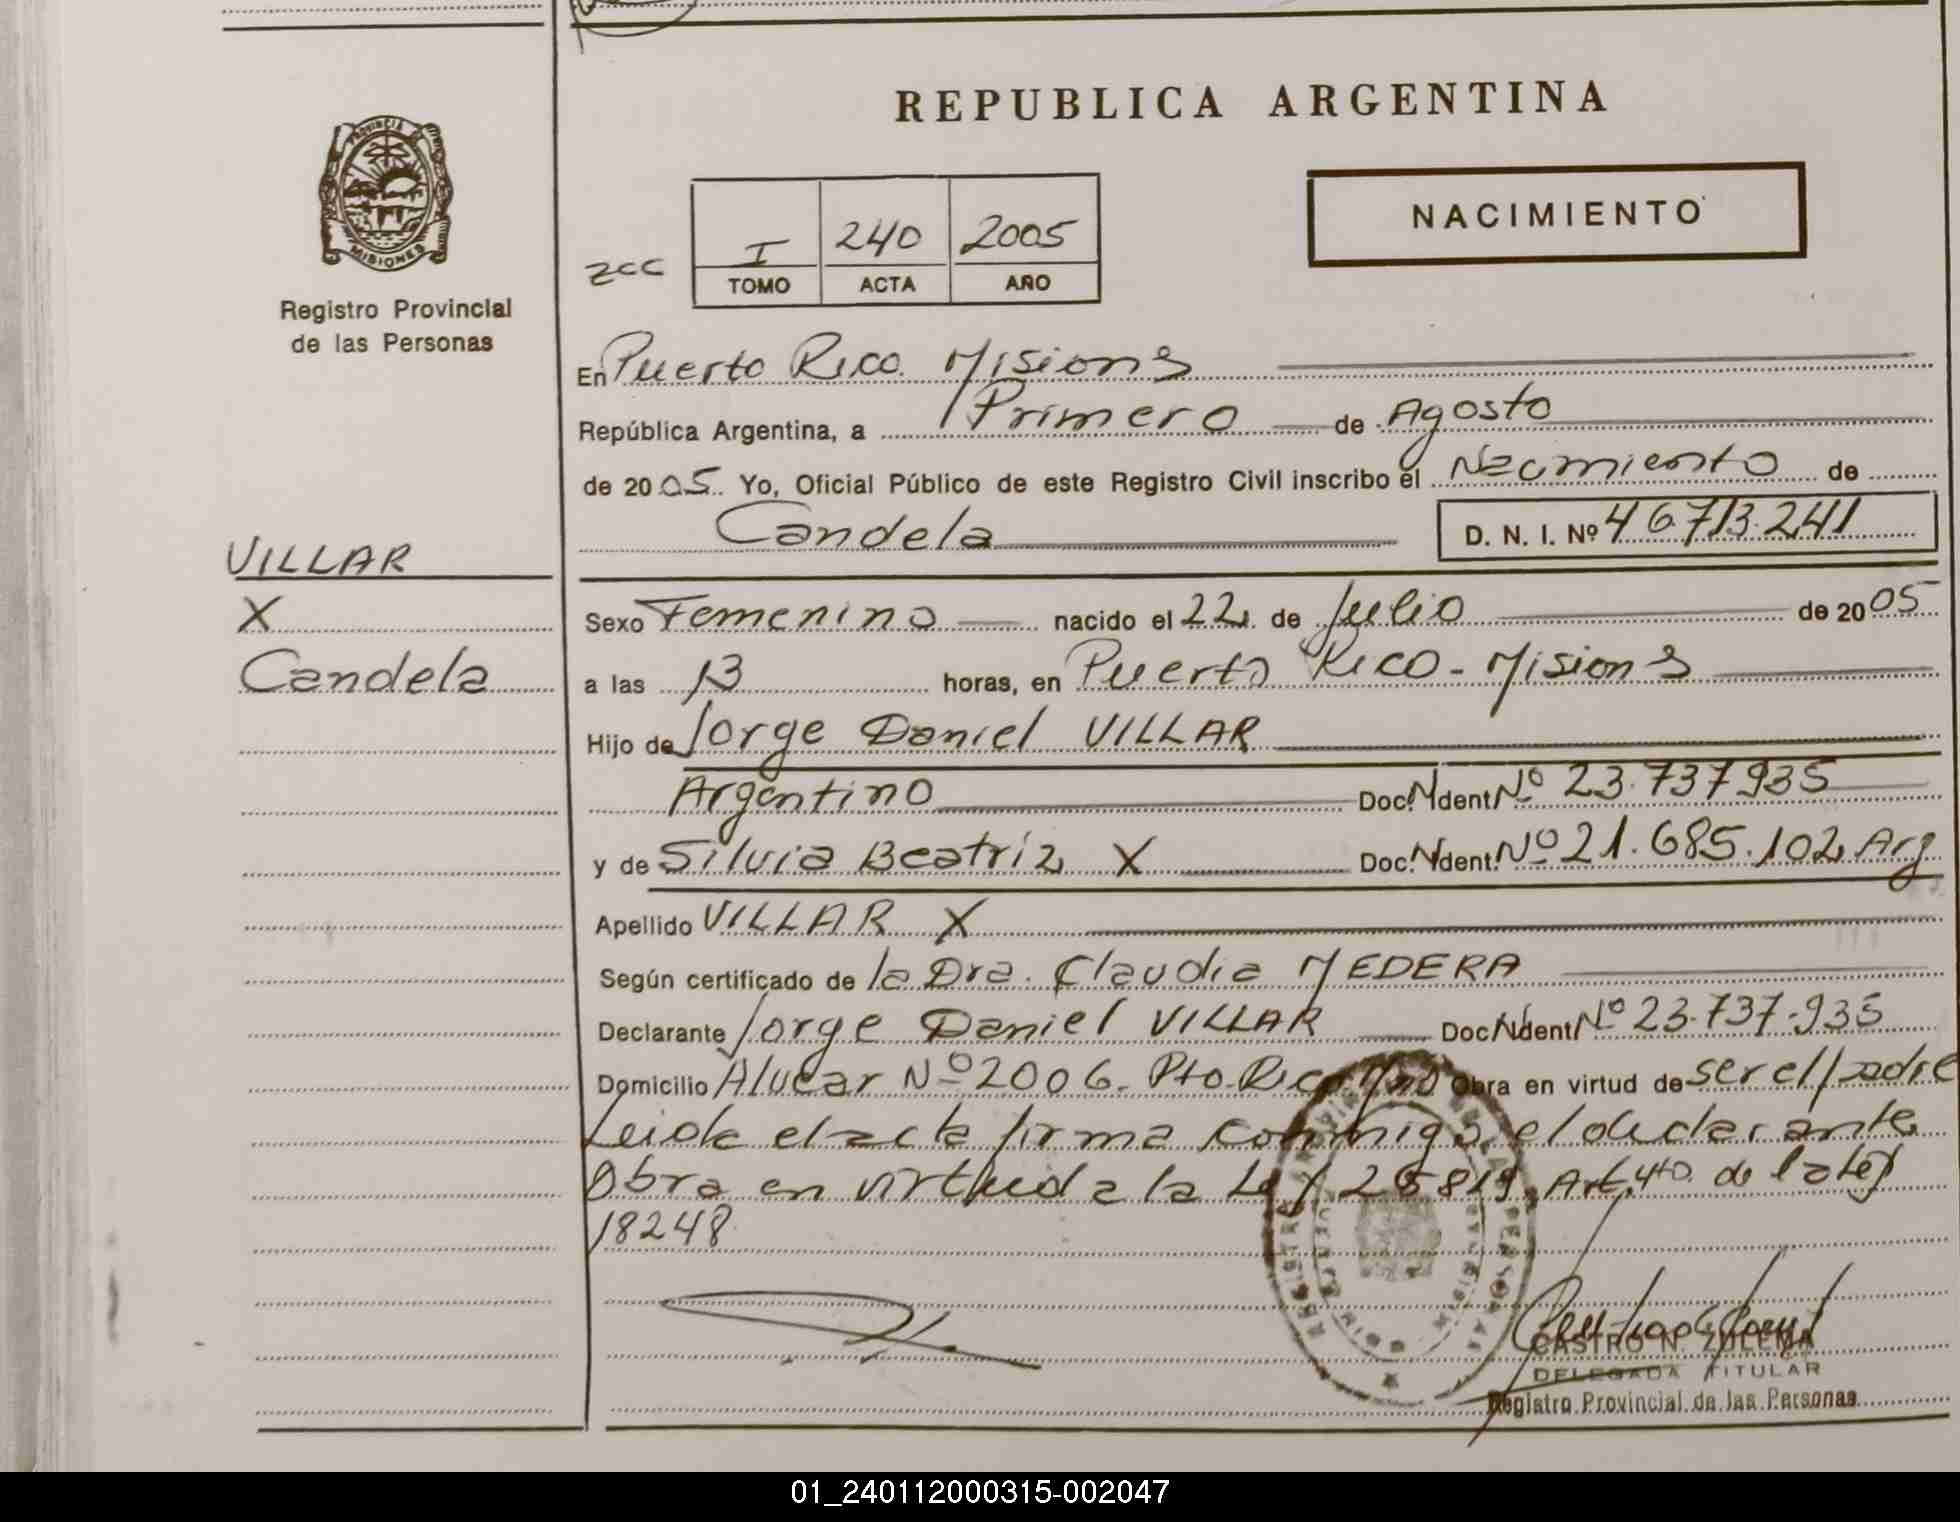 REPUBLICA ARGENTINA
PROVINCIA DE MISIONES
Registro Provincial
de las Personas
zcc
I 240 2005
TOMO ACTA AÑO
NACIMIENTO
En Puerto Rico. Misions
República Argentina, a Primero de Agosto
de 2005 Yo, Oficial Público de este Registro Civil inscribo el Nacimiento de
Candela D. N. I. Nº 46.713.241
VILLAR
X
Candela
Sexo Femenino nacido el 22 de Julio de 2005
a las 13 horas, en Puerto Rico - Misions
Hijo de Jorge Daniel VILLAR
Argentino Doc. Ident. Nº 23.737.935
y de Silvia Beatriz X Doc. Ident. Nº 21.685.102 Arg
Apellido VILLAR X
Según certificado de la Dra. Claudia MEDERA
Declarante Jorge Daniel VILLAR Doc. Ident. Nº 23.737.935
Domicilio Alvear Nº 2006. Pto. Rico Mnes Obra en virtud de ser el padre
Leida el acta firma conmigo el declarante
Obra en virtud a la Ley 26819 Art. 4to. de la Ley
18248
CASTRO N. ZULEMA
DELEGADA TITULAR
Registro Provincial de las Personas
01_240112000315-002047